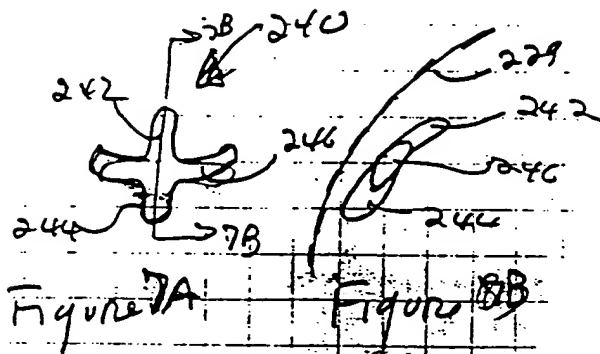 7B
240
242
246
244
7B
Figure 7A
229
242
246
244
Figure 8B